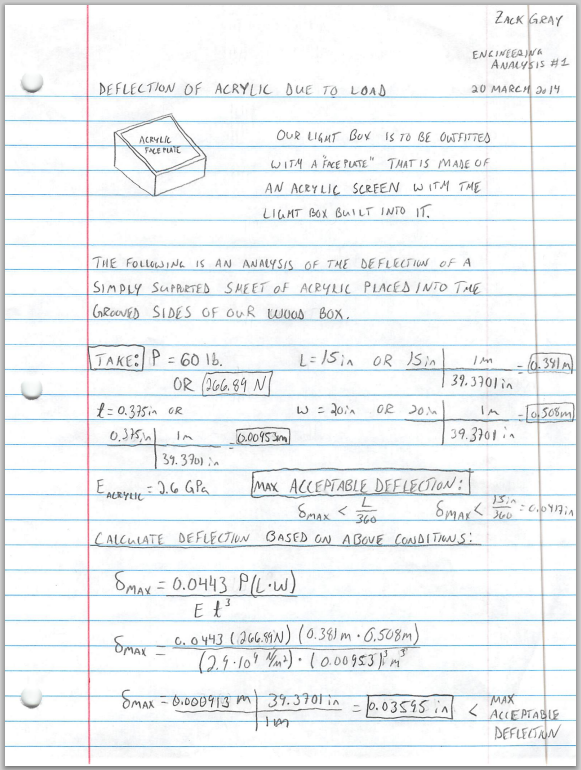 ZACK GRAY
ENGINEERING
ANALYSIS #1
DEFLECTION OF ACRYLIC DUE TO LOAD
20 MARCH 2014
ACRYLIC
FACE PLATE
OUR LIGHT BOX IS TO BE OUTFITTED
WITH A "FACE PLATE" THAT IS MADE OF
AN ACRYLIC SCREEN WITH THE
LIGHT BOX BUILT INTO IT.
THE FOLLOWING IS AN ANALYSIS OF THE DEFLECTION OF A
SIMPLY SUPPORTED SHEET OF ACRYLIC PLACED INTO THE
GROOVED SIDES OF OUR WOOD BOX.
TAKE: P = 60 lb. L = 15 in OR 15 in | 1 m = 0.381 m
OR 266.89 N 39.3701 in
t = 0.375 in OR w = 20 in OR 20 in | 1 m = 0.508 m
0.375 in | 1 m = 0.00953 m 39.3701 in
39.3701 in
E ACRYLIC = 2.6 GPa MAX ACCEPTABLE DEFLECTION:
δMAX < L/360 δMAX < 15 in/360 = 0.0417 in
CALCULATE DEFLECTION BASED ON ABOVE CONDITIONS:
δMAX = 0.0443 P(L·W)
E t³
δMAX = 0.0443 (266.89N) (0.381 m · 0.508 m)
(2.9·10⁹ N/m²) · (0.00953)³ m³
δMAX = 0.000913 m | 39.3701 in = 0.03595 in < MAX
1 m ACCEPTABLE
DEFLECTION